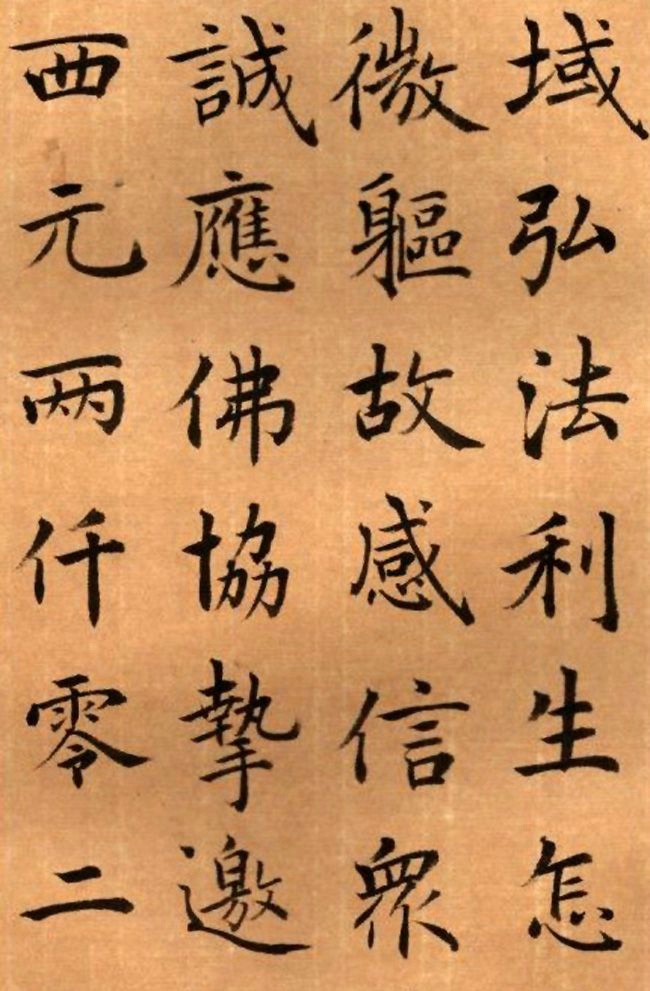 域弘法利生怎
微軀故感信眾
誠應佛協摯邀
西元两仟零二